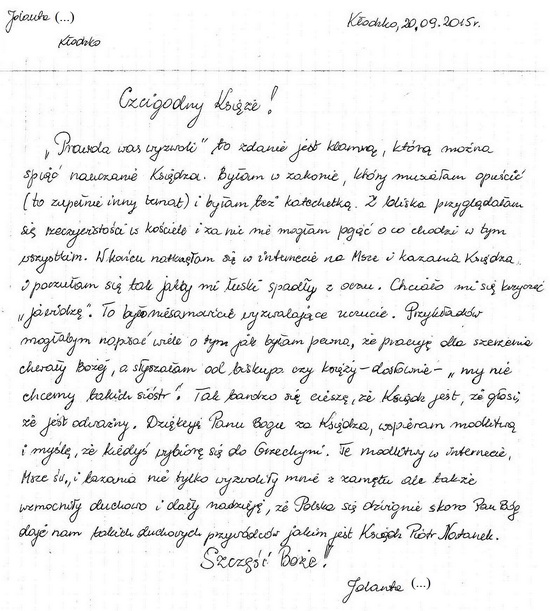 Jolanta (...)
Kłodzko
Kłodzko, 20.09.2015r.
Czcigodny Księże!
„Prawda was wyzwoli" to zdanie jest klamrą, którą można
spiąć nauczanie Księdza. Byłam w zakonie, który musiałam opuścić
(to zupełnie inny temat) i byłam też katechetką. Z bliska przyglądałam
się rzeczywistości w kościele i za nic nie mogłam pojąć o co chodzi w tym
wszystkim. W końcu natknęłam się w internecie na Msze i kazania Księdza
i poczułam się tak jakby mi łuski spadły z oczu. Chciało mi się krzyczeć
„ja widzę". To było niesamowicie wyzwalające uczucie. Przykładów
mogłabym napisać wiele o tym jak byłam pewna, że pracuję dla szerzenia
chwały Bożej, a słyszałam od biskupa czy księży - dosłownie - „my nie
chcemy takich sióstr". Tak bardzo się cieszę, że Ksiądz jest, że głosi,
że jest odważny. Dziękuję Panu Bogu za Księdza, wspieram modlitwą
i myślę, że kiedyś wybiorę się do Grzechyni. Te modlitwy w internecie,
Msze św., i kazania nie tylko wyzwoliły mnie z zamętu ale także
wzmocniły duchowo i dały nadzieję, że Polska się dźwignie skoro Pan Bóg
daje nam takich duchowych przywódców jakim jest Ksiądz Piotr Natanek.
Szczęść Boże!
Jolanta (...)